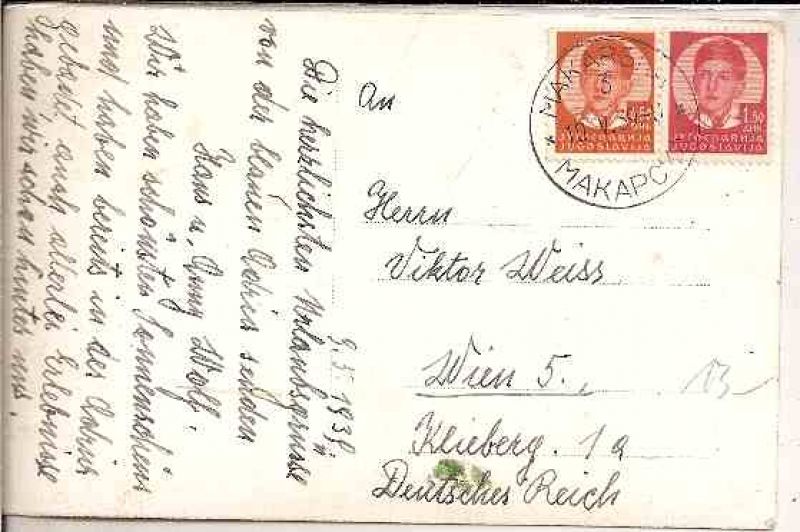 9. V. 1939
Die herzlichsten Urlaubsgrüsse
von der blauen Adria senden
Hans u. Anny Wolf.
Wir haben schönsten Sonnenschein
und haben bereits in der Adria
gebadet auch allerlei Erlebnisse
haben wir schon hinter uns.
An
Herrn
Viktor Weiss
Wien 5.,
Klieberg. 1a
Deutsches Reich
МАКАРС
MAKARS
ЈУГОСЛАВИЈА
JUGOSLAVIJA
1.50
ДИН
ЈУГОСЛАВИЈА
JUGOSLAVIJA